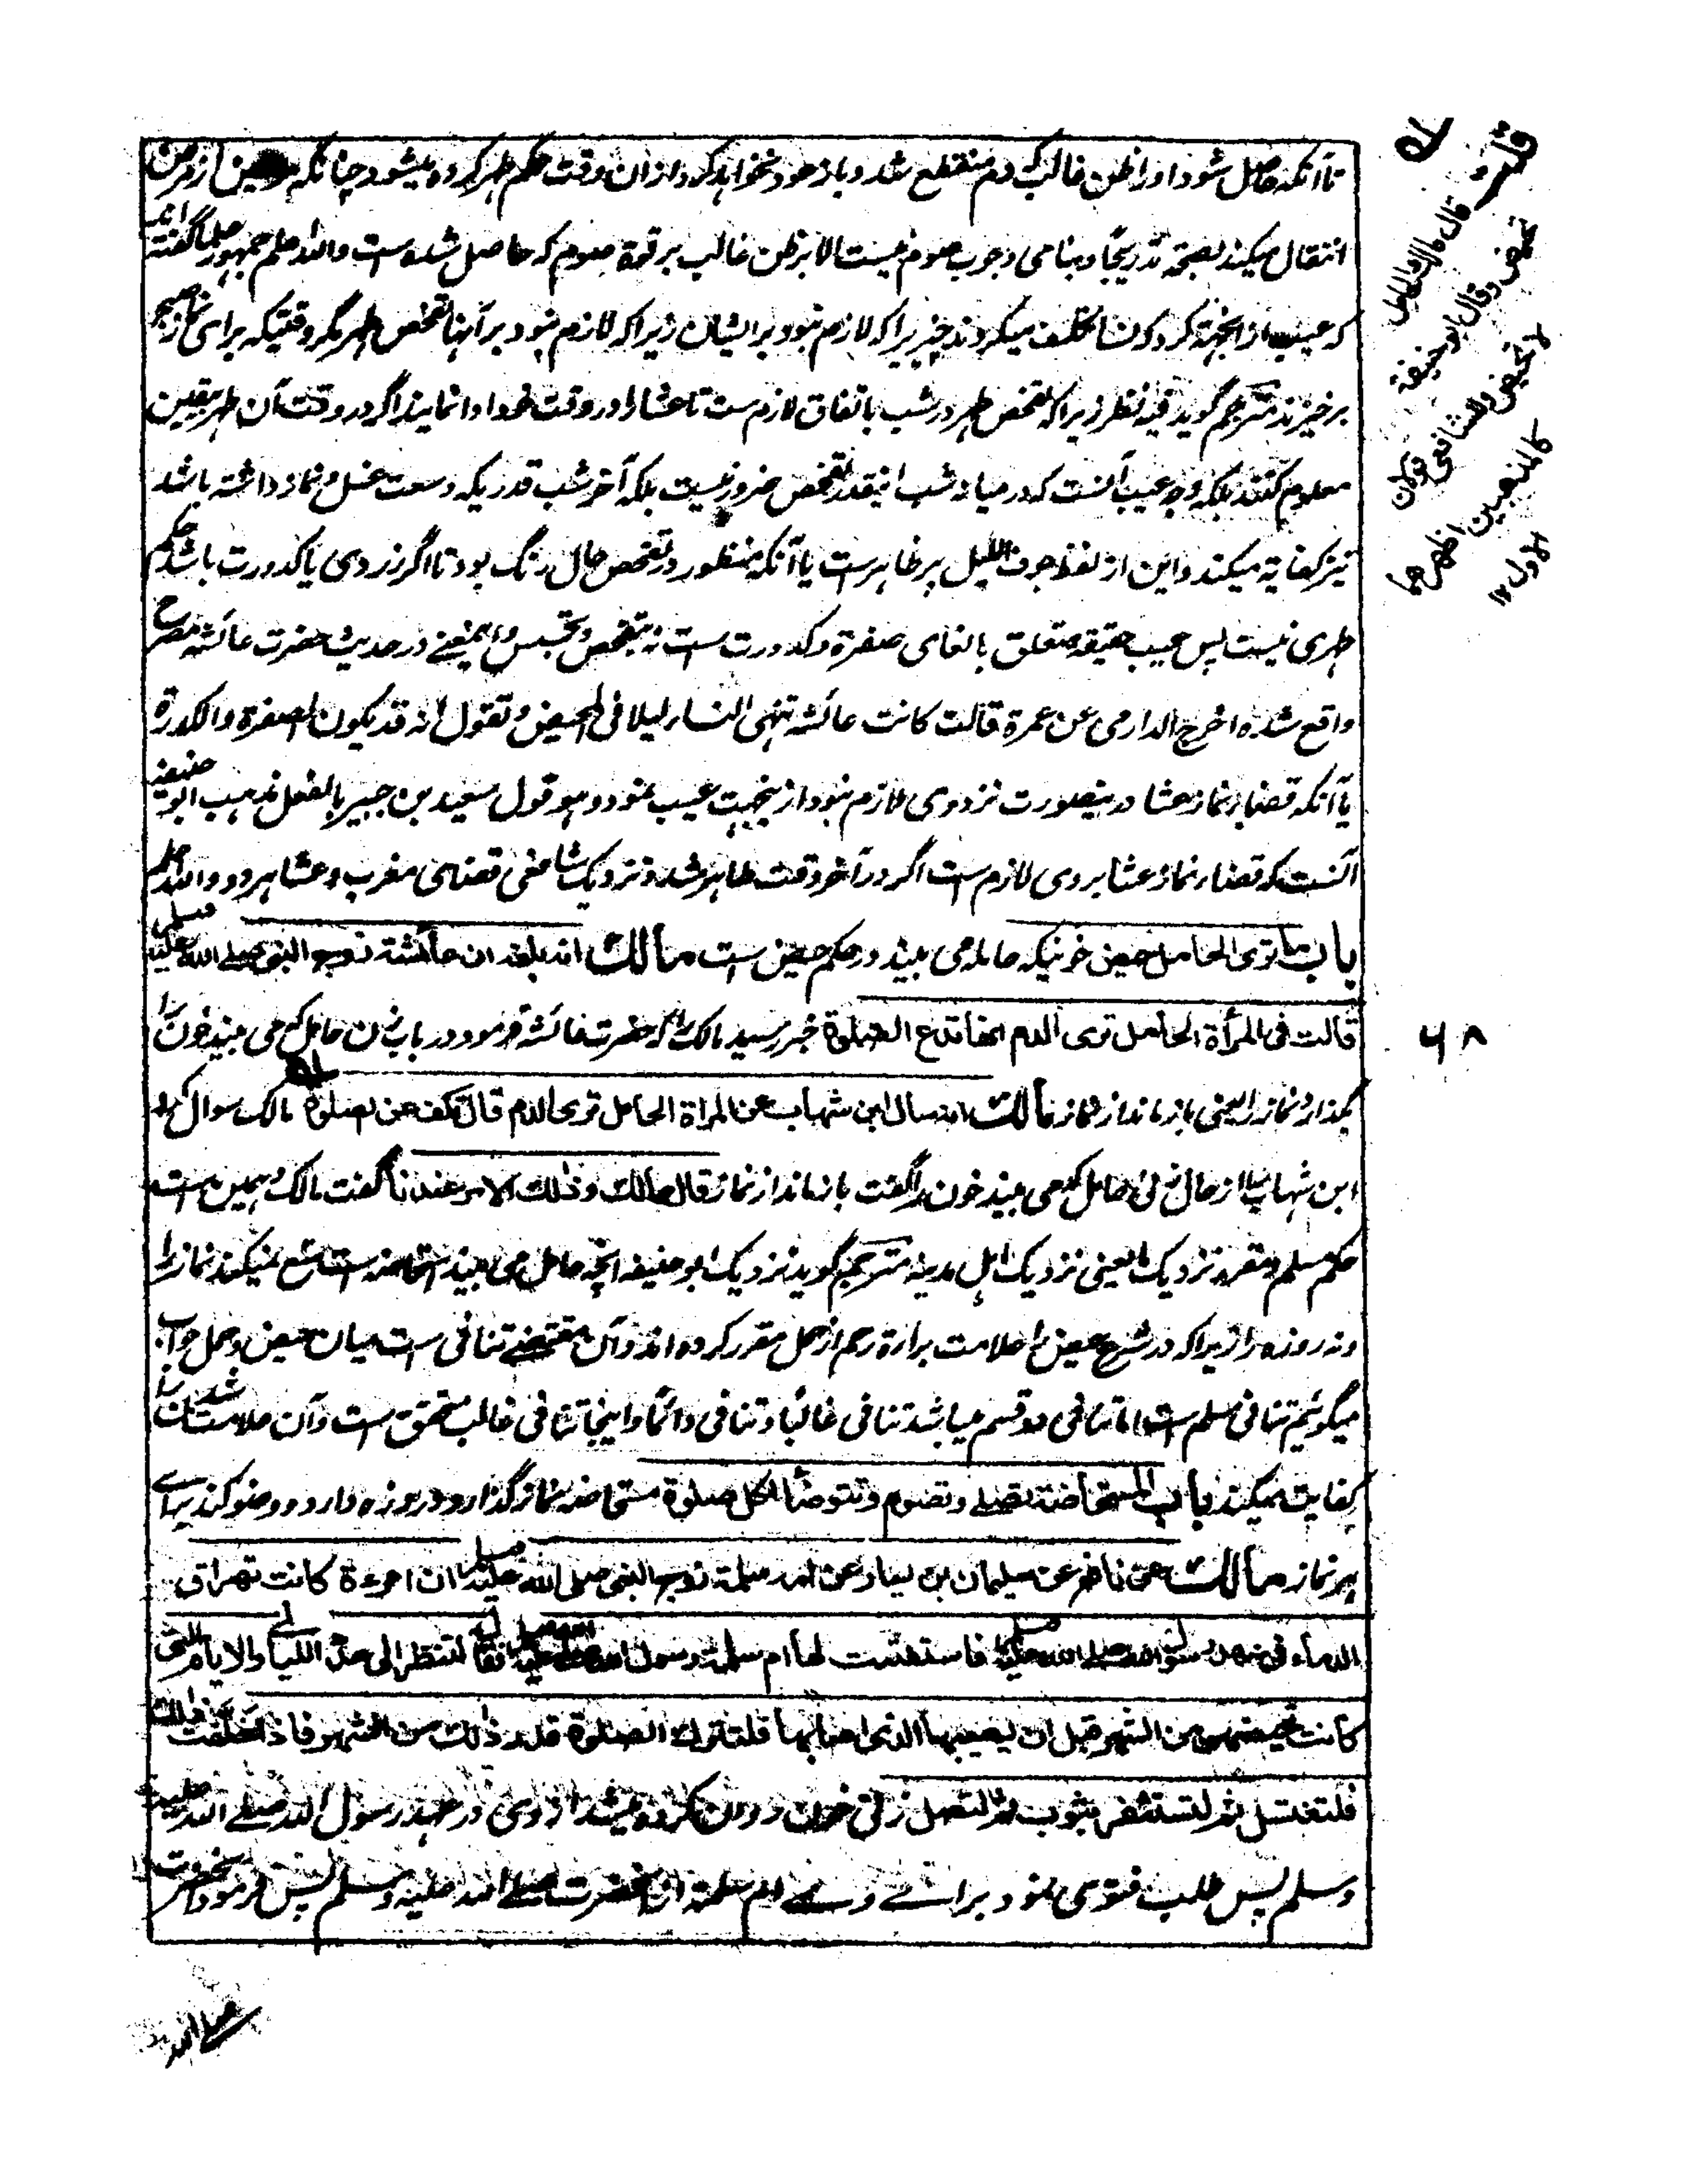 تا آنکه حاصل شود او را ظن غالب که دم منقطع شد و باز عود نخواهد کرد و از ان وقت حکم طهر کرده میشود چنانکه مریض از مرض
انتقال میکند بصحة تدریجاً و بنا می وجوب صوم نیست الا بر ظن غالب بر قوة صوم که حاصل شده است والله اعلم جمهور علما گفته اند
که عیب از اینجهة کرد که نسا تکلف میکردند چیزیرا که لازم نبود بر ایشان زیرا که لازم نبود بر آنها تفحص طهر مگر وقتیکه برای نماز صبح
برخیزند مترجم گوید فیه نظر زیرا که تفحص طهر در شب باتفاق لازم ست تا عشا را در وقت خود ادا نمایند اگر در وقت آن طهر بیقین
معلوم کنند بلکه وجه عیب آنست که در میانه شب اینقدر تفحص ضرور نیست بلکه آخر شب قدریکه وسعت غسل و نماز داشته باشد
نیز کفایة میکند و این از لفظ جوف اللیل پر ظاهرست یا آنکه منظور در تفحص حال رنگ بود تا اگر زردی یا کدورت باشد حکم
طهری نیست پس عیب حقیقة متعلق بالغای صفرة و کدورت ست نه بتفحص و تجسس و این معنے در حدیث حضرت عائشه مصرح
واقع شده اخرج الدارمی عن عمرة قالت کانت عائشة تنهی النساء لیلا فی الحیض و تقول انه قد یکون الصفرة والکدرة
یا آنکه قضاء نماز عشا درینصورت نزد وی لازم نبود ازینجهت عیب نمود و هو قول سعید بن جبیر بالفعل مذهب ابو حنیفه
آنست که قضاء نماز عشا بروی لازم ست اگر در آخر وقت طاهر شد و نزدیک شافعی قضای مغرب و عشا هر دو والله اعلم
باب ما تری الحامل حیض خونیکه حامله می بیند در حکم حیض ست مالک انه بلغه ان عائشة زوج النبی صلی الله علیه وسلم
قالت فی المرأة الحامل تری الدم انها تدع الصلوة خبر رسید مالک را که حضرت عائشه فرمود در باب زن حامل که می بیند خون را
بگذارد نماز را یعنی باز ماند از نماز مالک انه سال ابن شهاب عن المراة الحامل تری الدم قال تکف عن الصلوة مالک سوال کرد
ابن شهاب را از حال زنی حامل که می بیند خون را گفت باز ماند از نماز قال مالک وذلک الامر عندنا گفت مالک و همین ست
حکم مسلم و مقرر نزدیک ما یعنی نزدیک اهل مدینه مترجم گوید نزدیک ابو حنیفه انچه حامل می بیند استحاضه ست منع نمیکند نماز را
و نه روزه را زیرا که در شرع حیض را علامت براءة رحم از حمل مقرر کرده اند و آن مقتضے تنافی ست میان حیض و حمل جواب
میگوئیم تنافی مسلم ست اما تنافی دو قسم میباشد تنافی غالباً و تنافی دائماً و اینجا تنافی غالب متحقق ست و آن علامت شدن را
کفایت میکند باب المستحاضة تصلے وتصوم وتتوضأ لکل صلوة مستحاضه نماز گذارد و روزه دارد و وضو کند برای
هر نماز مالک عن نافع عن سلیمان بن یسار عن ام سلمة زوج النبی صلی الله علیه وسلم ان امرءة کانت تهراق
الدماء فی عهد رسول الله صلے الله علیه وسلم فاستفتت لها أم سلمة رسول الله صلی الله علیه وسلم فقال لتنظر الی عدد اللیالی والایام التی
کانت تحیضهن من الشهر قبل ان یصیبها الذی اصابها فلتترک الصلوة قدر ذلک من الشهر فاذا خلفت ذلک
فلتغتسل ثم لتستثفر بثوب ثم لتصل زنی خون روان کرده میشد از وی در عهد رسول الله صلے الله علیه
وسلم پس طلب فتوی نمود برائے وے ام سلمة از آنحضرت صلے الله علیه وسلم پس فرمود آنحضرت
صلی الله
۶۸
له
قلت
قال مالک الحامل
تحیض وقال ابو حنیفة
لا تحیض وللشافعی قولان
کالمذهبین اظهرهما
الاول ۱۲